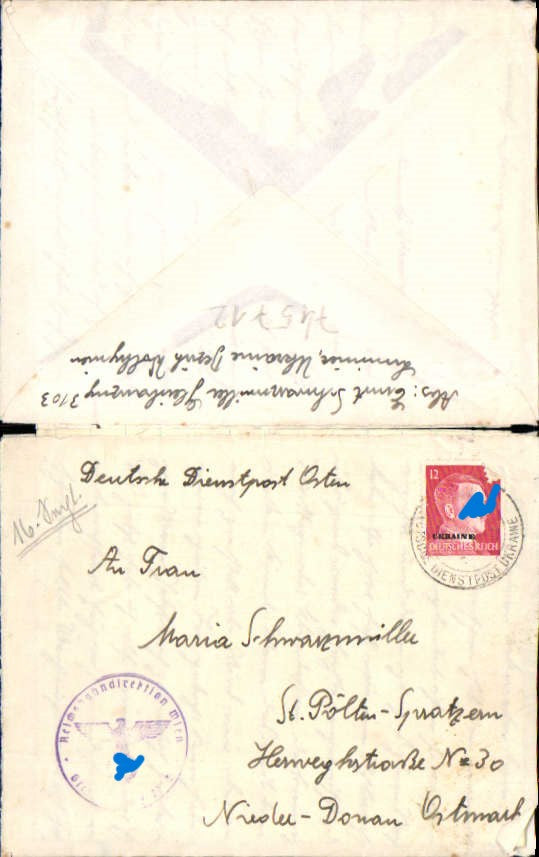 Abs: Ernst Schwarzmüller 3103
Ukraine Bezirk Wolhynien
74572
Deutsche Dienstpost Osten
12
UKRAINE
DEUTSCHES REICH
DIENSTPOST UKRAINE
16.
An Frau
Maria Schwarzmüller
Reichsbahndirektion Wien
St. Pölten-Spratzern
Herweghstraße No 30
Nieder-Donau Ostmark